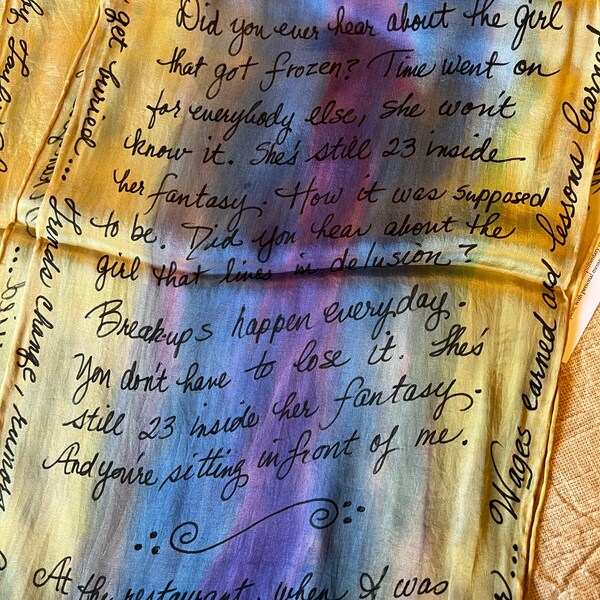 Did you ever hear about the girl
that got frozen? Time went on
for everybody else, she won't
know it. She's still 23 inside
her fantasy. How it was supposed
to be. Did you hear about the
girl that lives in delusion?
Breakups happen everyday.
You don't have to lose it. She's
still 23 inside her fantasy.
And you're sitting in front of me.
At the restaurant, when I was
get buried.... Trends change, rumors
Wages earned and lessons learned